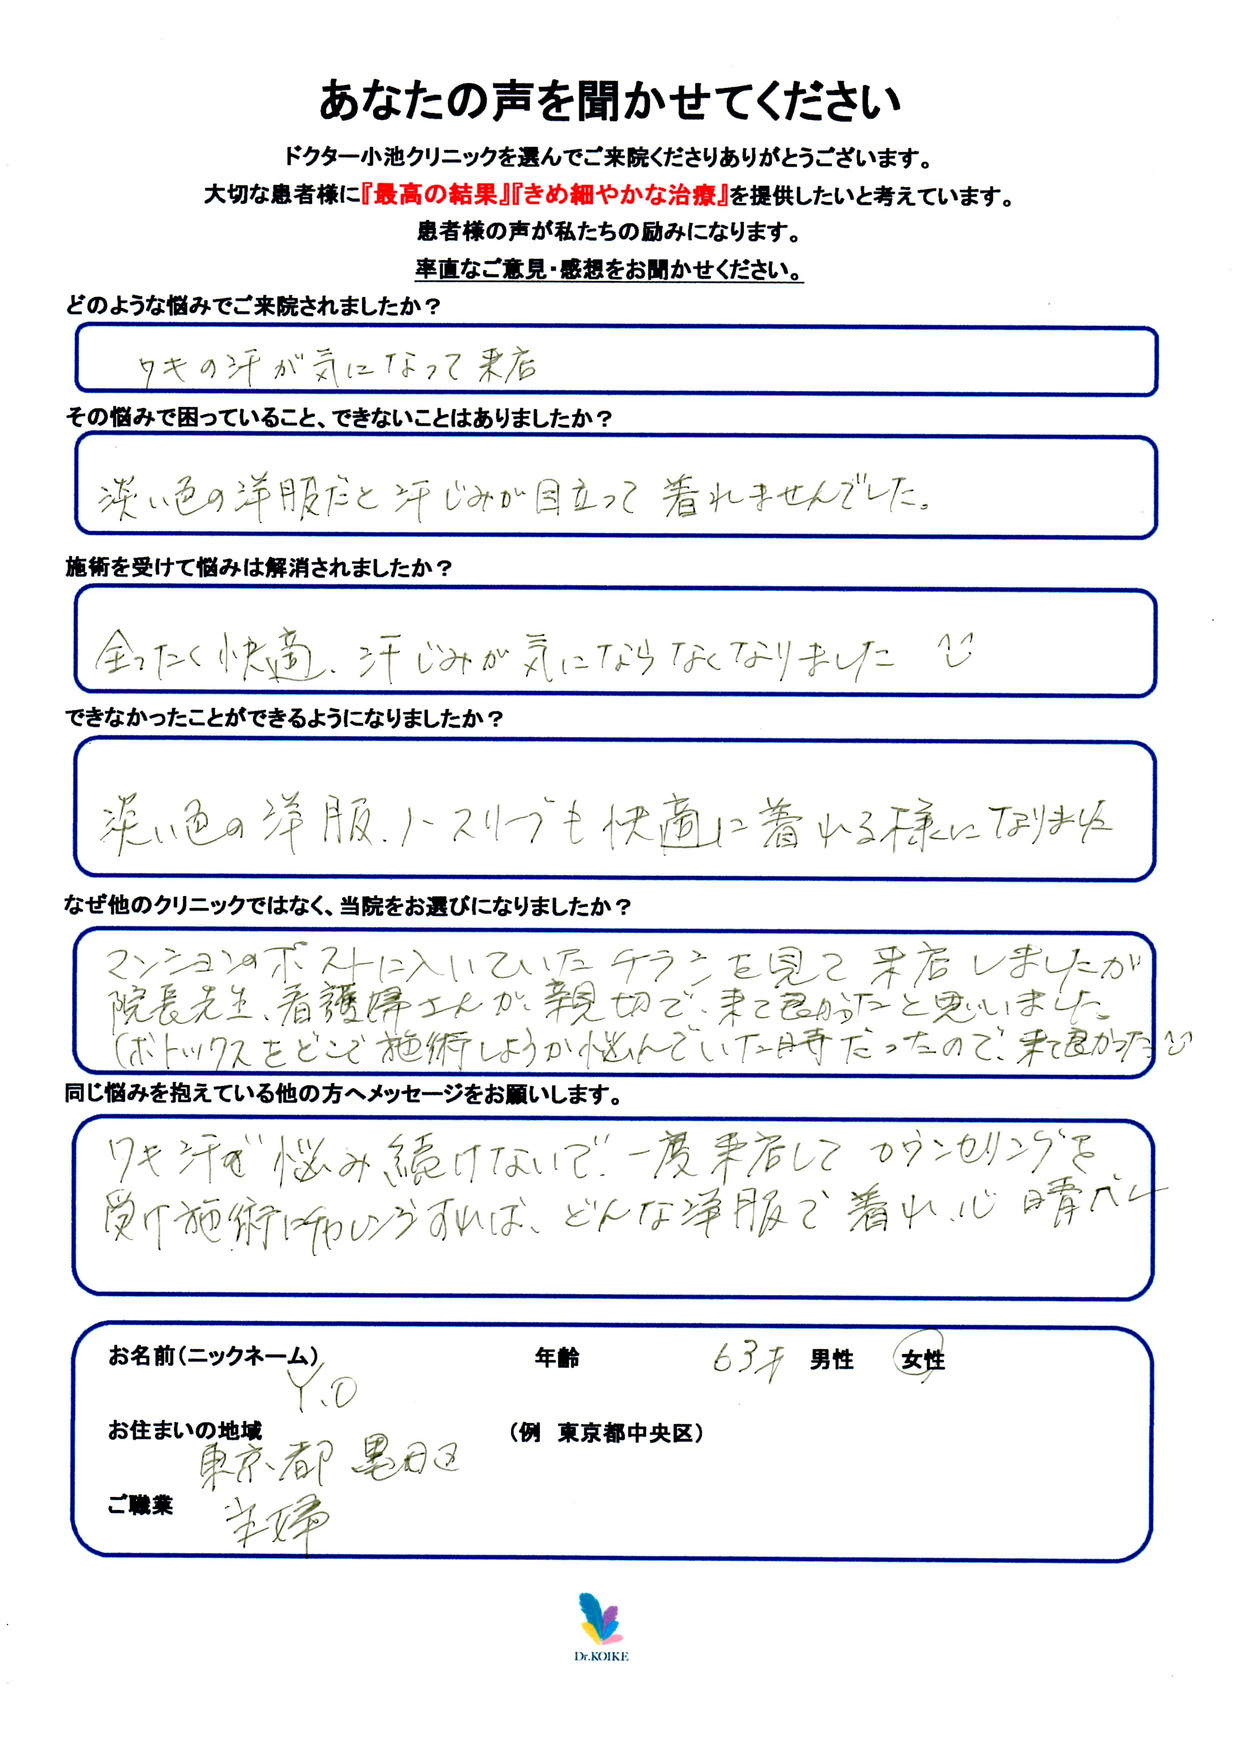 あなたの声を聞かせてください
ドクター小池クリニックを選んでご来院くださりありがとうございます。
大切な患者様に『最高の結果』『きめ細やかな治療』を提供したいと考えています。
患者様の声が私たちの励みになります。
率直なご意見・感想をお聞かせください。
どのような悩みでご来院されましたか？
ワキの汗が気になって来店
その悩みで困っていること、できないことはありましたか？
淡い色の洋服だと汗じみが目立って着れませんでした。
施術を受けて悩みは解消されましたか？
全ったく快適、汗じみが気にならなくなりました
できなかったことができるようになりましたか？
淡い色の洋服、ノースリーブも快適に着れる様になりました
なぜ他のクリニックではなく、当院をお選びになりましたか？
マンションのポストに入いていたチラシを見て来店しましたが
院長先生、看護婦さんが、親切で、来て良かったと思いました
(ボトックスをどこで施術しようか悩んでいた時だったので、来て良かった
同じ悩みを抱えている他の方へメッセージをお願いします。
ワキ汗で悩み続けないで、一度来店してカウンセリングを
受け施術にチャレンジすれば、どんな洋服で着れ、心晴れ
お名前（ニックネーム） 年齢 63才 男性 女性
Y.O
お住まいの地域 （例 東京都中央区）
東京都墨田区
ご職業 主婦
Dr.KOIKE